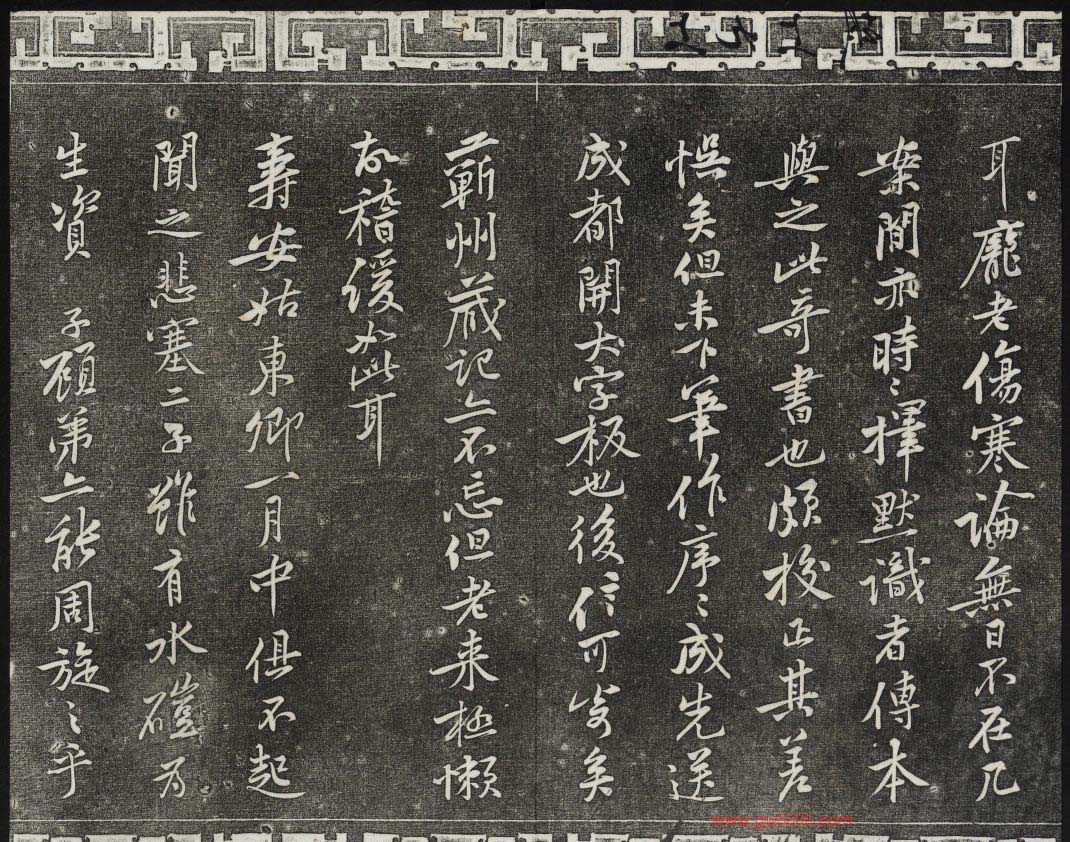 耳龐老傷寒論無日不在几
案間亦時〻擇默識者傳本
與之此奇書也頗挍正其差
悮矣但未下筆作序〻成先送
成都開大字板也後信可寄矣
蘄州藏記亦不忘但老来極懶
故稽緩如此耳
壽安姑東卿一月中俱不起
聞之悲塞二子雖有水磑為
生資 子顧弟亦能周旋之乎